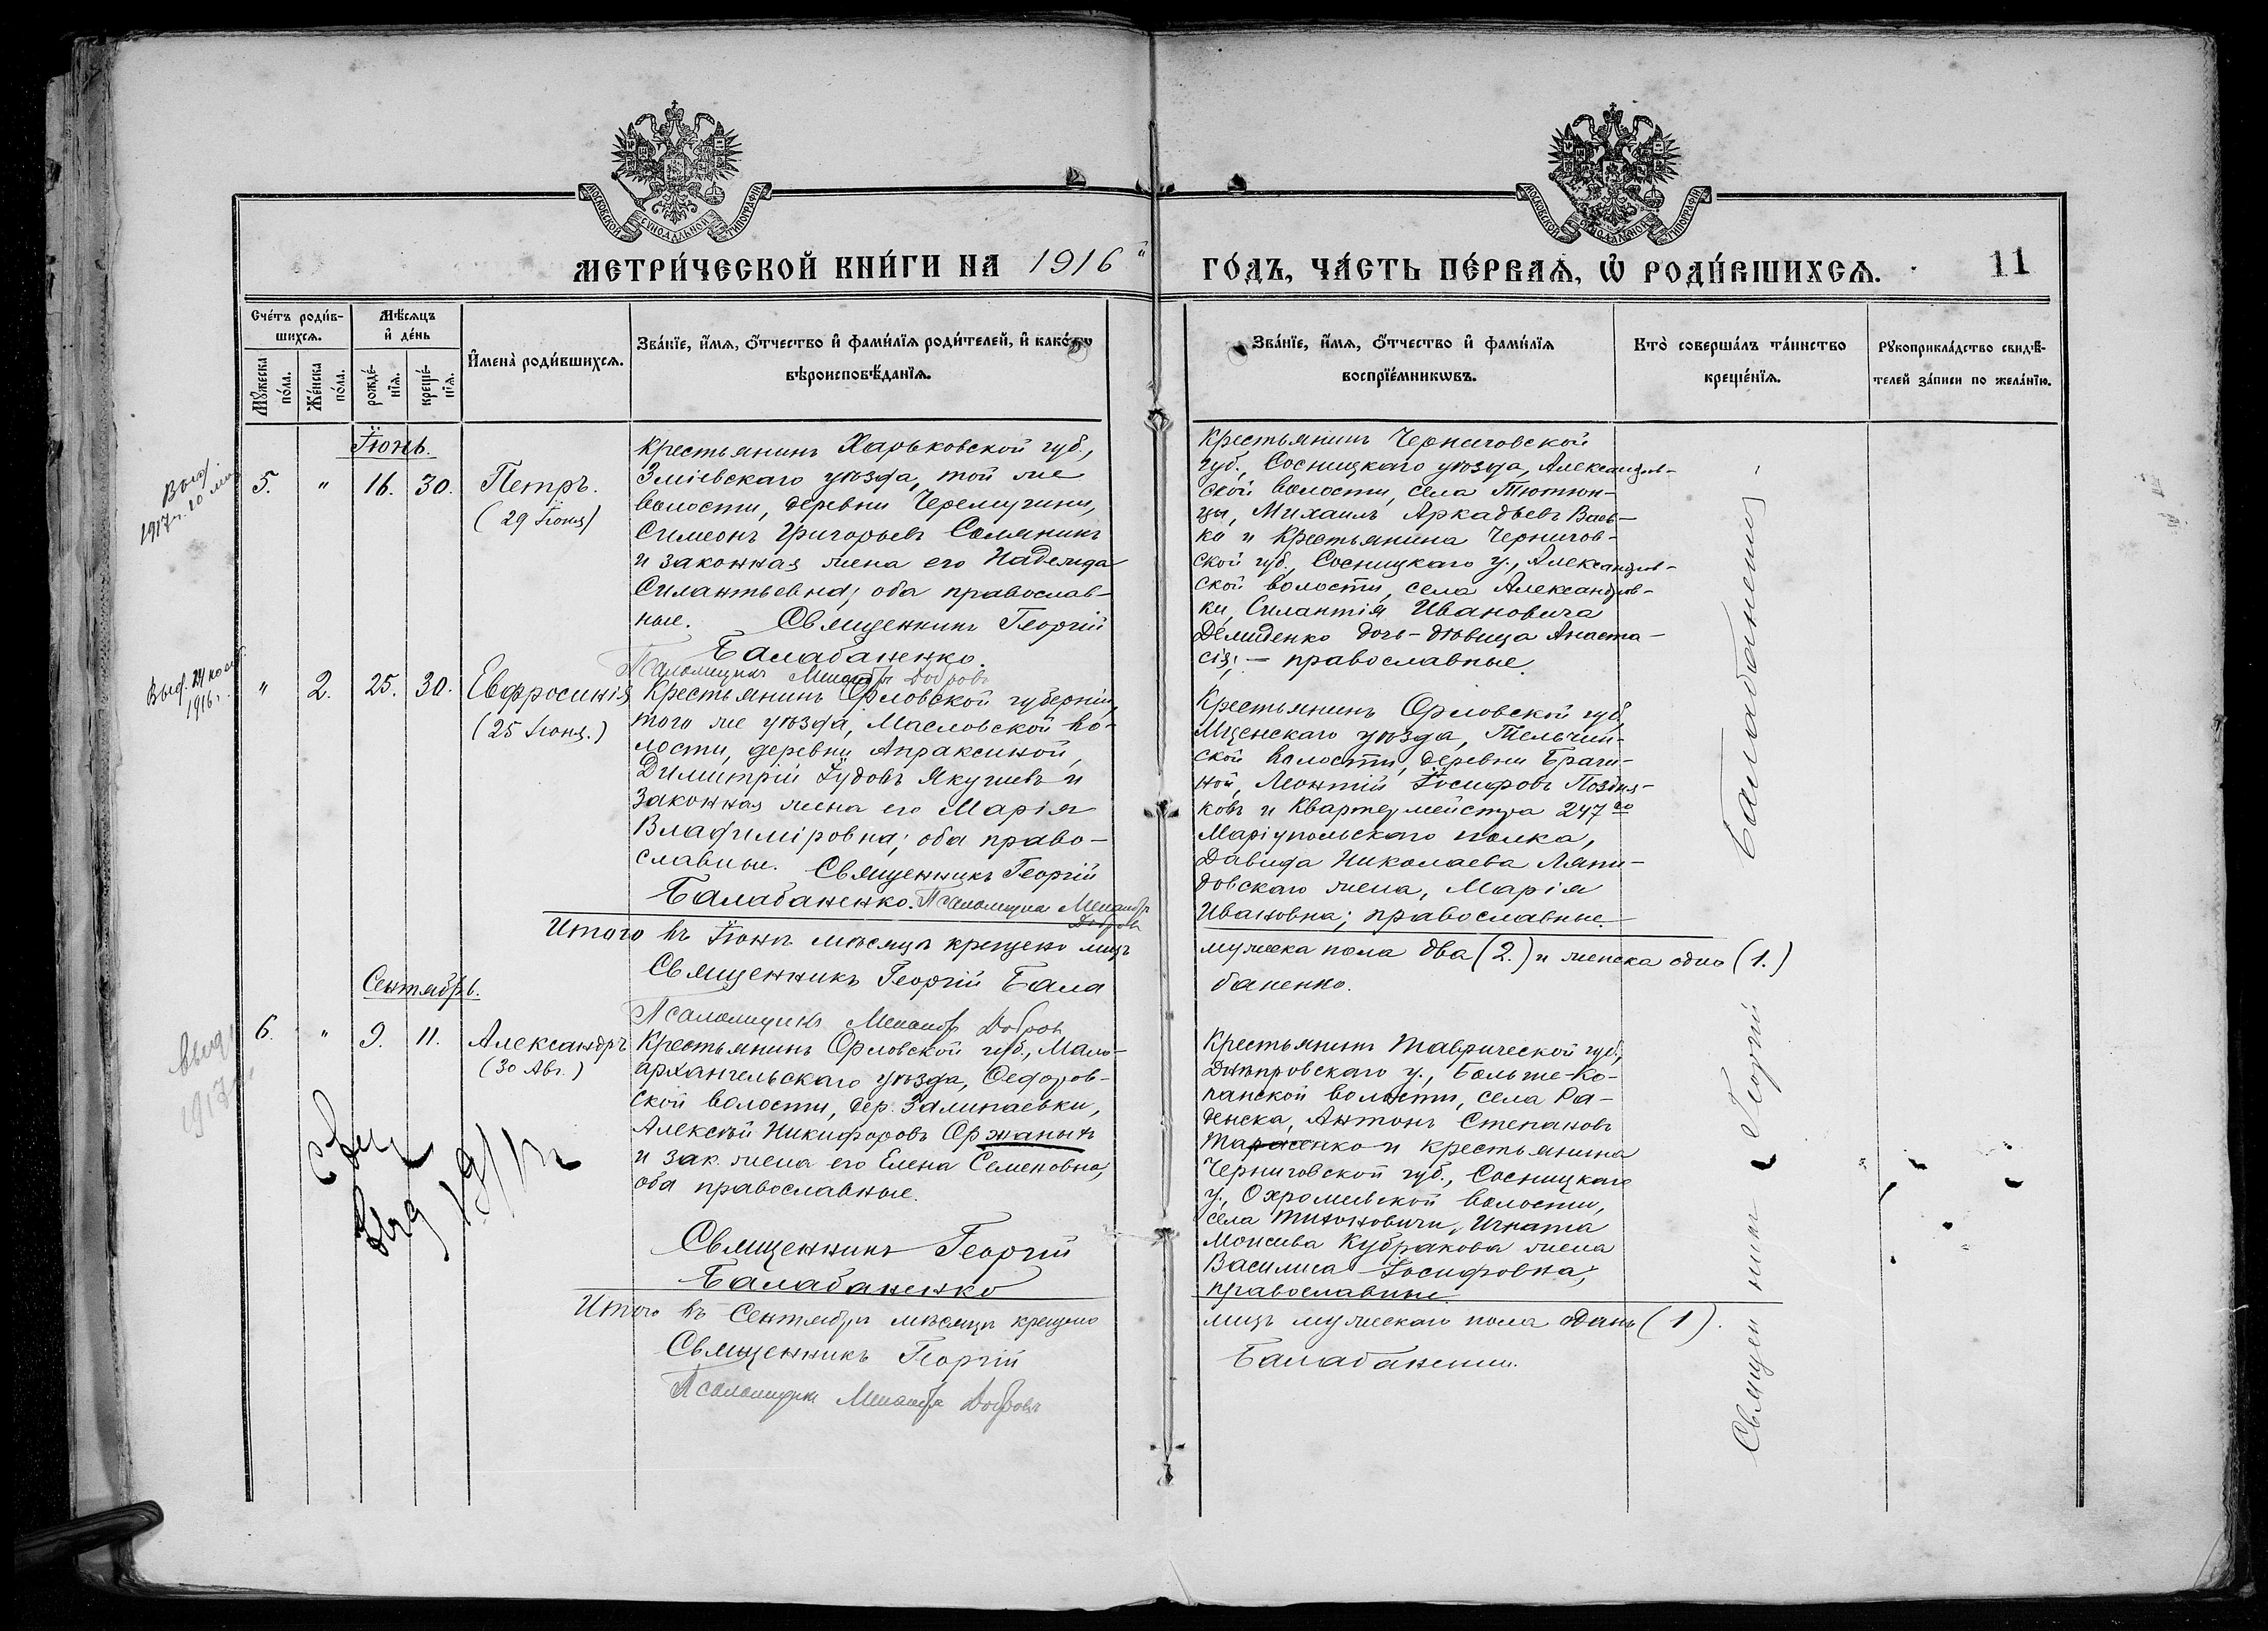 МОСКОВСКОЙ СѴНОДАЛЬНОЙ ТИПОГРАФІИ
МОСКОВСКОЙ СѴНОДАЛЬНОЙ ТИПОГРАФІИ
МЕТРИ́ЧЕСКОЙ КНИ́ГИ НА 1916 й
ГО́ДЪ, ЧА́СТЬ ПЕ́РВАѦ, Ѽ РОДИ́ВШИХСѦ.
11
Сче́тъ роди́в-
шихсѧ.
Мѣ́сѧцъ
и҆ де́нь
Мꙋ́жеска
по́ла.
Же́нска
по́ла.
рожде́-
нїѧ.
креще́-
нїѧ.
И҆мена̀ роди́вшихсѧ.
Зва́нїе, и҆́мѧ, ѻ҆́тчество и҆ фами́лїѧ роди́телей, и҆ како́гѡ
вѣроисповѣ́данїѧ.
Зва́нїе, и҆́мѧ, ѻ҆́тчество и҆ фами́лїѧ
воспрїе́мникѡвъ.
Кто̀ соверша́лъ та́инство
креще́нїѧ.
Рꙋкоприкла́дство свидѣ́-
телей за́писи по жела́нїю.
Іюнь.
5. " 16. 30. Петръ.
(29 Іюня)
Крестьянинъ Харьковской губ.,
Зміевскаго уѣзда, той же
волости, деревни Черемушни,
Симеонъ Григорьевъ Солянинъ
и законная жена его Надежда
Силантьевна; оба православ-
ные. Священникъ Георгій
Балабаненко.
Псаломщикъ Менандръ Добровъ
Крестьянинъ Черниговской
губ., Сосницкаго уѣзда, Александров-
ской волости, села Тютюн-
цы, Михаилъ Аркадьевъ Вась-
ко и Крестьянина Чернигов-
ской губ., Сосницкаго у., Александров-
ской волости, села Александров-
ки, Силантія Ивановича
Демиденко дочь-дѣвица Анаста-
сія; — православные.
Выд. 24 нояб.
1916 г.
" 2. 25. 30. Евфросинія
(25 Іюня.)
Крестьянинъ Орловской губерніи,
того же уѣзда, Масловской во-
лости, деревни Апраксиной,
Димитрій Іудовъ Якушевъ и
законная жена его Марія
Владиміровна; оба право-
славные. Священникъ Георгій
Балабаненко. Псаломщикъ Менандръ
Добровъ
Крестьянинъ Орловской губ.,
Мценскаго уѣзда, Тельчин-
ской волости, деревни Браги-
ной, Леонтій Іосифовъ Поздня-
ковъ и Квартермейстра 247го
Маріупольскаго полка,
Давида Николаева Лапи-
довскаго жена, Марія
Ивановна; православные.
Итого въ Іюнѣ мѣсяцѣ крещено лицъ
мужеска пола два (2.) и женска одно (1.)
Священникъ Георгій Бала
баненко.
Псаломщикъ Менандръ Добровъ
Сентябрь.
6. " 9. 11. Александръ
(30 Авг.)
Крестьянинъ Орловской губ., Мало-
архангельскаго уѣзда, Ѳедоров-
ской волости, дер. Залипаевки,
Алексѣй Никифоровъ Оржаныхъ
и зак. жена его Елена Семеновна;
оба православные.
Священникъ Георгій
Балабаненко
Крестьянинъ Таврической губ.,
Днѣпровскаго у., Больше-Ко-
панской волости, села Ра-
денска, Антонъ Степановъ
Тарасенко и крестьянина
Черниговской губ., Сосницкаго
у., Охромѣевской волости,
села Тихоновичи, Игната
Моисеева Кубракова жена
Василиса Іосифовна;
православные
Итого въ Сентябрѣ мѣсяцѣ крещено
лицъ мужескаго пола одинъ (1).
Священникъ Георгій
Балабаненко.
Псаломщикъ Менандръ Добровъ
Священникъ Георгій Балабаненко